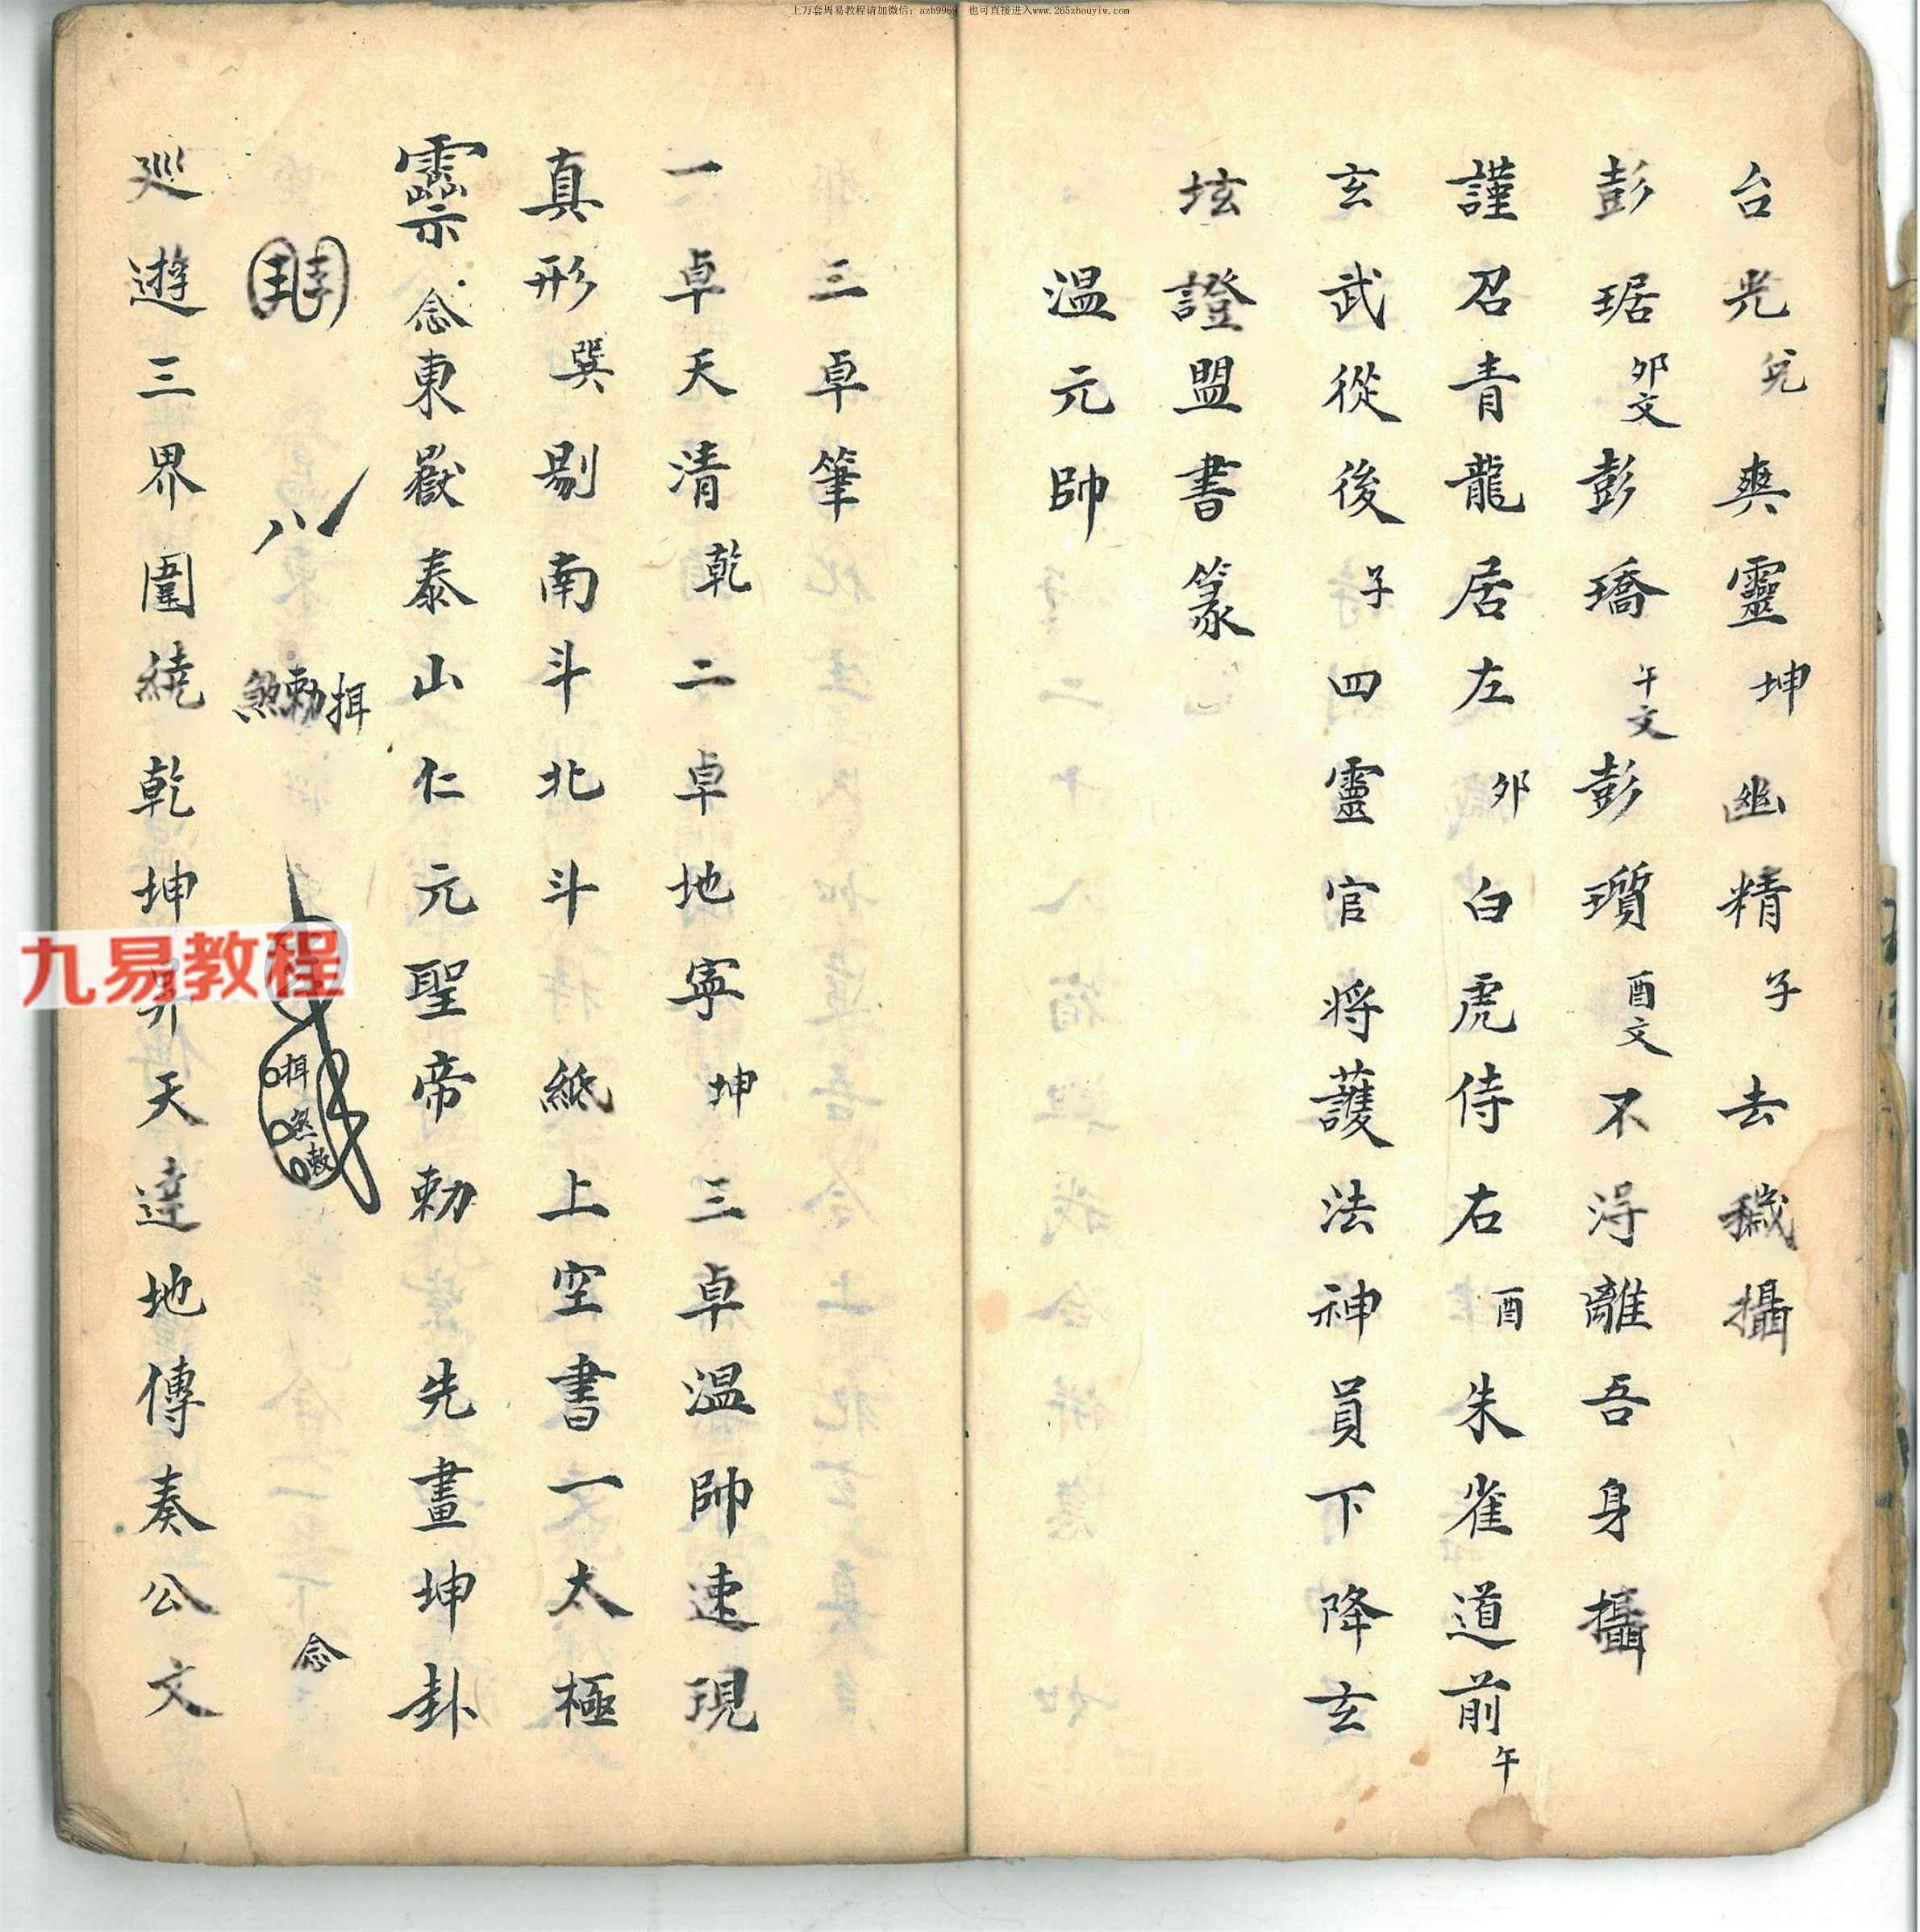 上万套周易教程请加微信：azh9969 也可直接进入www.265zhouyiw.com
台光兌爽靈坤幽精子去穢攝
彭琚卯文彭璚午文彭瓆酉文不淂離吾身攝
謹召青龍居左卯白虎侍右酉朱雀道前午
玄武從後子四靈官将護法神員下降玄
坛證盟書篆
温元帥
三卓筆
一卓天清乾二卓地寜坤三卓温帥速現
真形巽剔南斗北斗紙上空書一太極
念東嶽泰山仁元聖帝勅先畫坤卦
八
煞勅揖
揖煞敕
念
巡遊三界圍繞乾坤昇天達地傳奏公文
九易教程